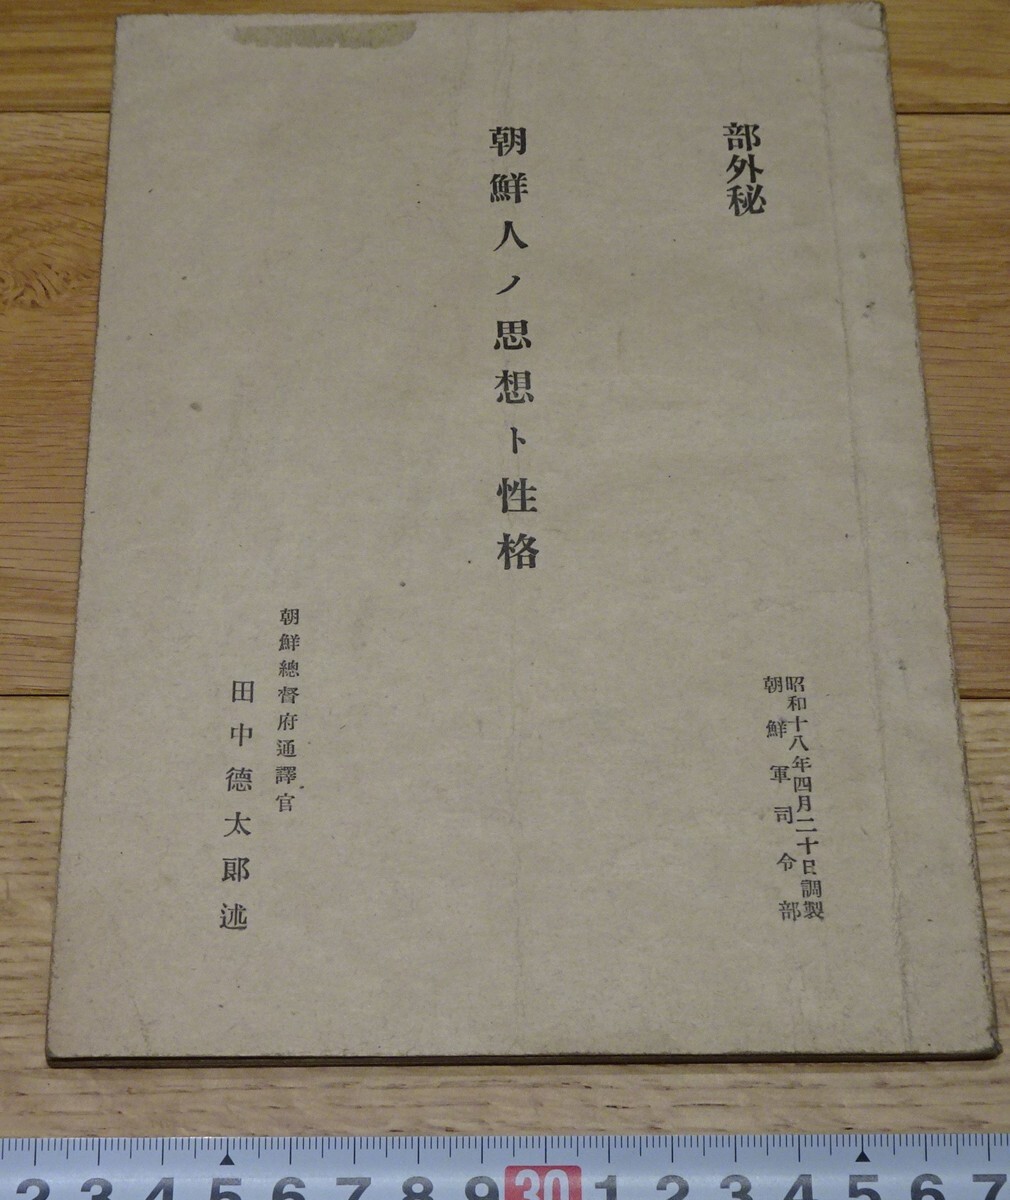 部外秘
昭和十八年四月二十日調製
朝鮮軍司令部
朝鮮人ノ思想ト性格
朝鮮總督府通譯官
田中德太郎述
2 3 4 5 6 7 8 9 30 1 2 3 4 5 6 7